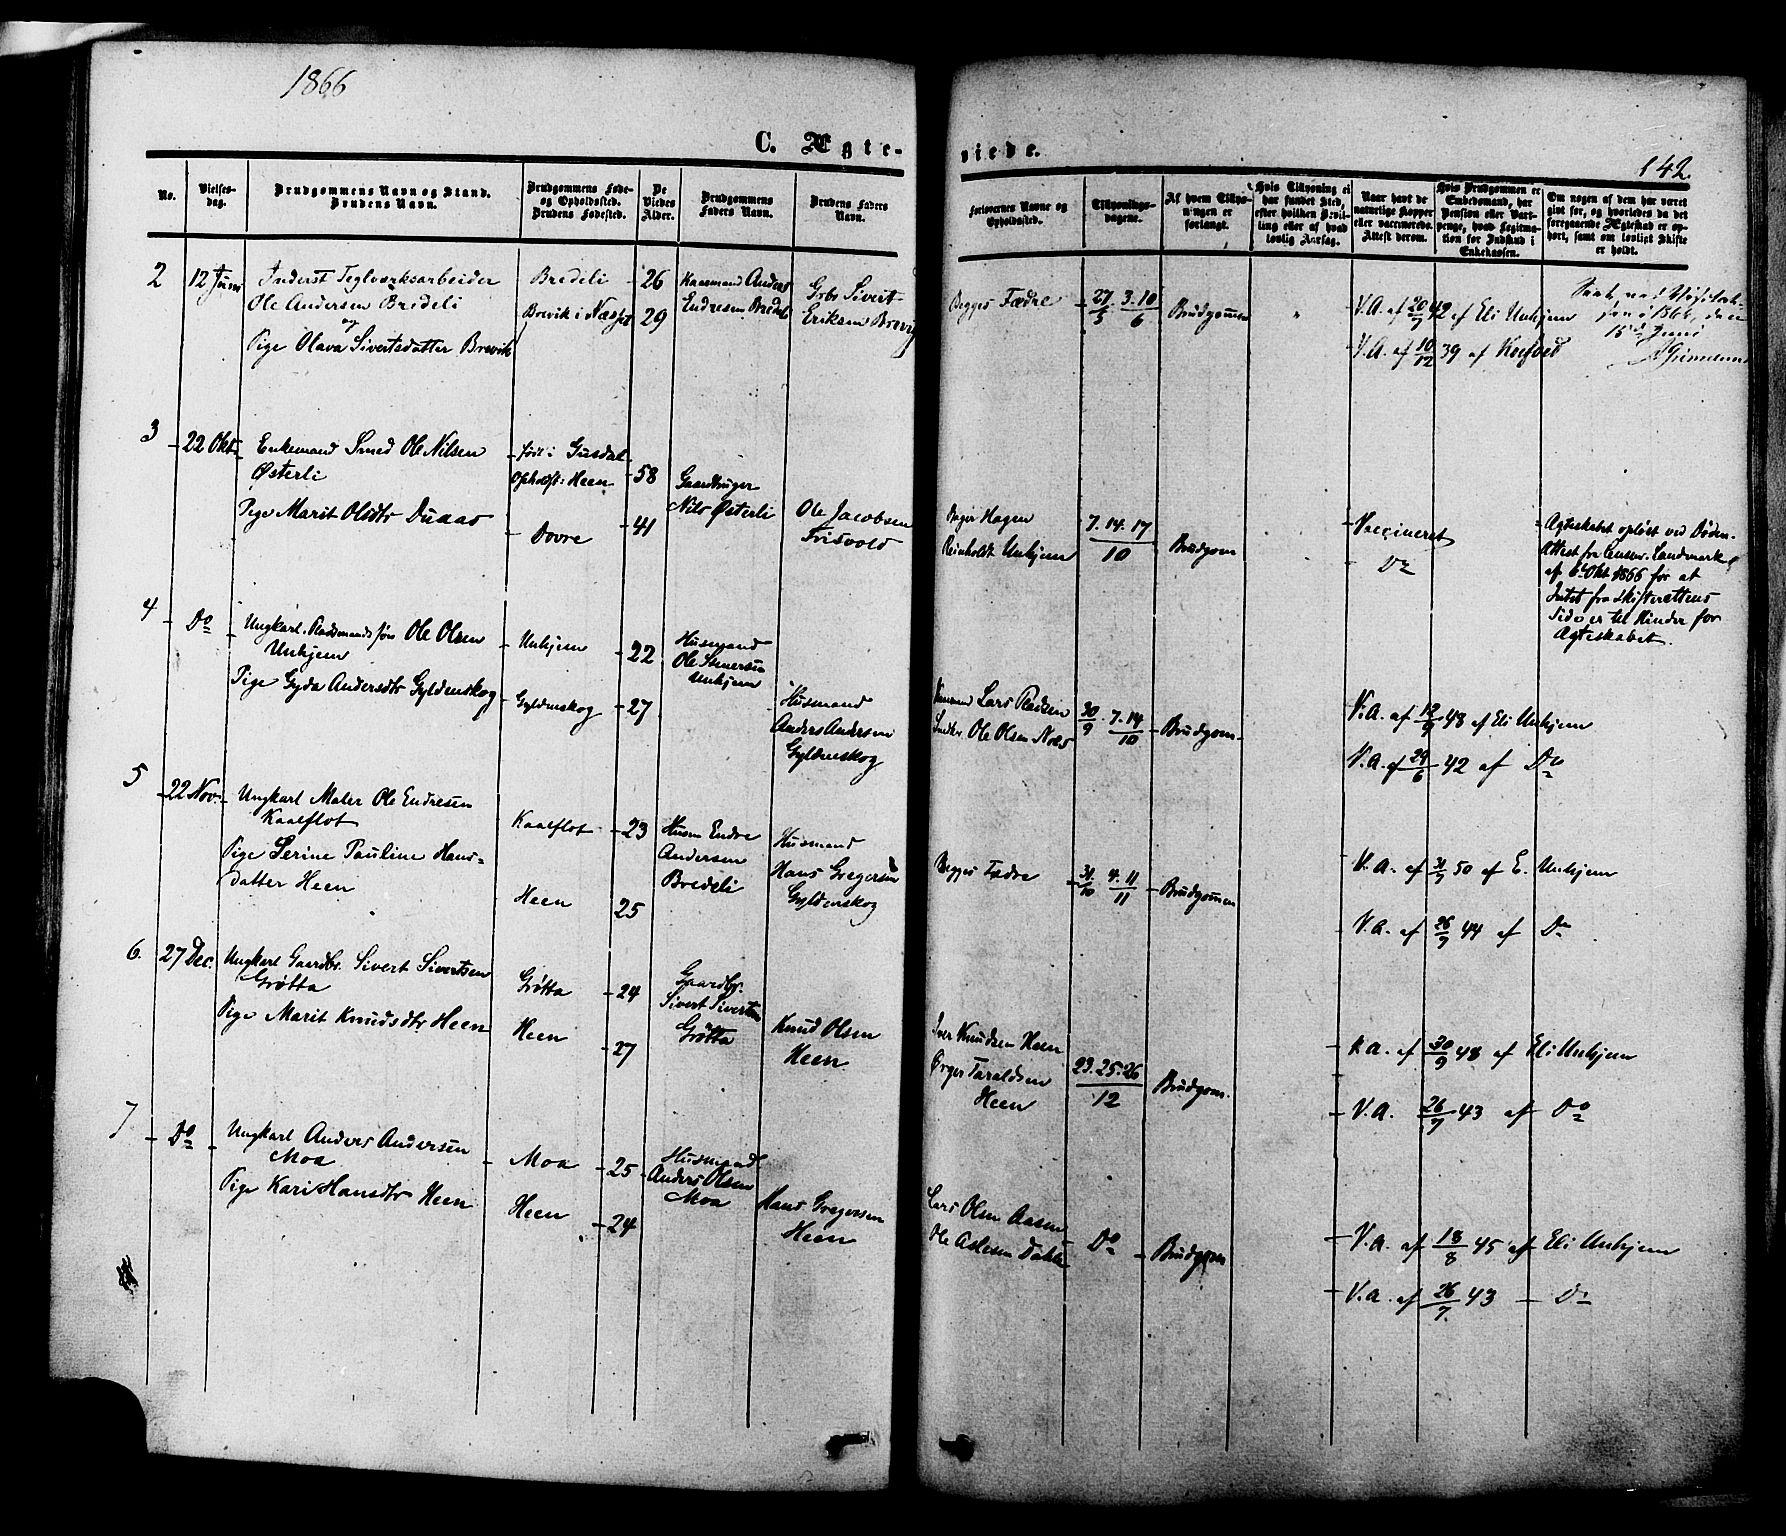 1866
C. Ægte-
viede.
142.
No.
Vielses-
dag.
Brudgommens Navn og Stand.
Brudens Navn.
Brudgommens Føde-
og Opholdssted.
Brudens Fødested.
De
Viedes
Alder.
Brudgommens
Faders Navn.
Brudens Faders
Navn.
Forlovernes Navne og
Opholdssted.
Tillysnings-
dagene.
Af hvem Tillys-
ningen er
forlangt.
Hvis Tillysning ei
har fundet Sted,
efter hvilken Bevil-
ling eller af hvad
lovlig Aarsag.
Naar havt de
naturlige Kopper
eller vaccinerede.
Attest derom.
Hvis Brudgommen er
Embedsmand, har
Pension eller Vart-
penge, hvad Legitima-
tion for Indskud i
Enkekassen.
Om nogen af dem har været
gift før, og hvorledes da det
foregaaende Ægteskab er op-
hørt, samt om lovligt Skifte
er holdt.
2
12 Juni
Inderst Teglverksarbeider
Ole Andersen Bredeli
og
Pige Olava Sivertsdatter Brevik
Bredeli
Brevik i Næsset
26
29
Anders
Endresen Bredeli
Gbr Sivert
Eriksen Brevig
Begges Fædre
27/5 3. 10/6
Brudgommen
V.A. af 20/7 42 af Eli Unhjem
V.A. af 10/12 39 af Korsved
1866, den
15de Juni
3
22 Okt
Enkemand Smed Ole Nilsen
Østerli
Pige Marit Olsdtr Duaas
Født i Gusdal
Opholdst: Heen
Dovre
58
41
Gaardbruger
Nils Østerli
Ole Jacobsen
Frisvold
Birger Hagen
Reinholdt Unhjem
7. 14. 17/10
Brudgom
Vaccineret
Do
Ægteskabet opløst ved Døden.
Attest fra Lensm. Landmark
af 6te Okt 1866 for at
Intet fra Skifterettens
Side er til Hinder for
Ægteskabet.
4
Do
Ungkarl. Pladsmandssøn Ole Olsen
Unhjem
Pige Gyda Andersdtr Gyldenskog
Unhjem
Gyldenskog
22
27
Husmand
Ole Iversen
Unhjem
Husmand
Anders Andersen
Gyldenskog
Lars Pedersen
Ole Olsen Næs
30/9 . 7. 14/10
Brudgom
V.A. af 12/9 48 af Eli Unhjem
V.A. af 24/6 42 af Do
5
22 Nov.
Ungkarl Maler Ole Endresen
Kaalflot
Pige Serine Pauline Hans-
datter Heen
Kaalflot
Heen
23
25
Husm Endre
Andersen
Bredeli
Husmand
Hans Gregersen
Gyldenskog
Begges Fædre
31/10 4. 11/11
Brudgommen
V.A. af 31/7 50 af E. Unhjem
V.A. af 26/7 44 af Do
6.
27 Dec.
Ungkarl Gaardbr. Sivert Sivertsen
Grøtta
Pige Marit Knudsdtr Heen
Grøtta
Heen
24
27
Gaardbr.
Sivert Sivertsen
Grøtta
Knud Olsen
Heen
Iver Knudsen Heen
Ørger Taraldsen
Heen
23. 25. 26/12
Brudgom.
V.A. af 30/9 48 af Eli Unhjem
V.A. 26/7 43 af Do
7
Do
Ungkarl Anders Andersen
Moa
Pige Kari Hansdtr Heen
Moa
Heen
25
24
Husmand
Anders Olsen
Moa
Hans Gregersen
Heen
Lars Olsen Aasen
Ole Aslesen Dahle
Do
Brudgom
V.A. af 18/8 45 af Eli Unhjem
V.A. af 26/7 43 Do